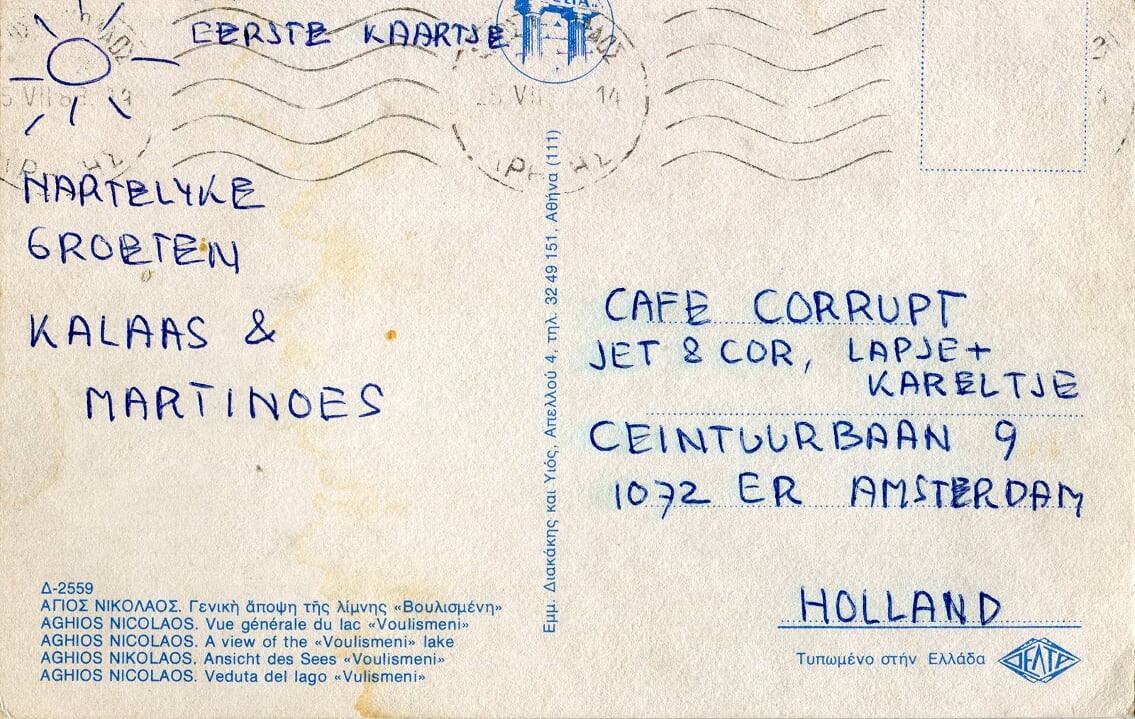 EERSTE KAARTJE
25 VII 14
HARTELYKE
GROETEN
KALAAS &
MARTINOES
CAFE CORRUPT
JET & COR, LAPJE +
KARELTJE
CEINTUURBAAN 9
1072 ER AMSTERDAM
HOLLAND
Εμμ. Διακάκης και Υιός, Απελλού 4, τηλ. 32 49 151, Αθήνα (111)
Δ-2559
ΑΓΙΟΣ ΝΙΚΟΛΑΟΣ. Γενική ἄποψη τῆς λίμνης «Βουλισμένη»
AGHIOS NICOLAOS. Vue générale du lac «Voulismeni»
AGHIOS NICOLAOS. A view of the «Voulismeni» lake
AGHIOS NIKOLAOS. Ansicht des Sees «Voulismeni»
AGHIOS NICOLAOS. Veduta del lago «Vulismeni»
Τυπωμένο στήν Ελλάδα
ΔΕΛΤΑ